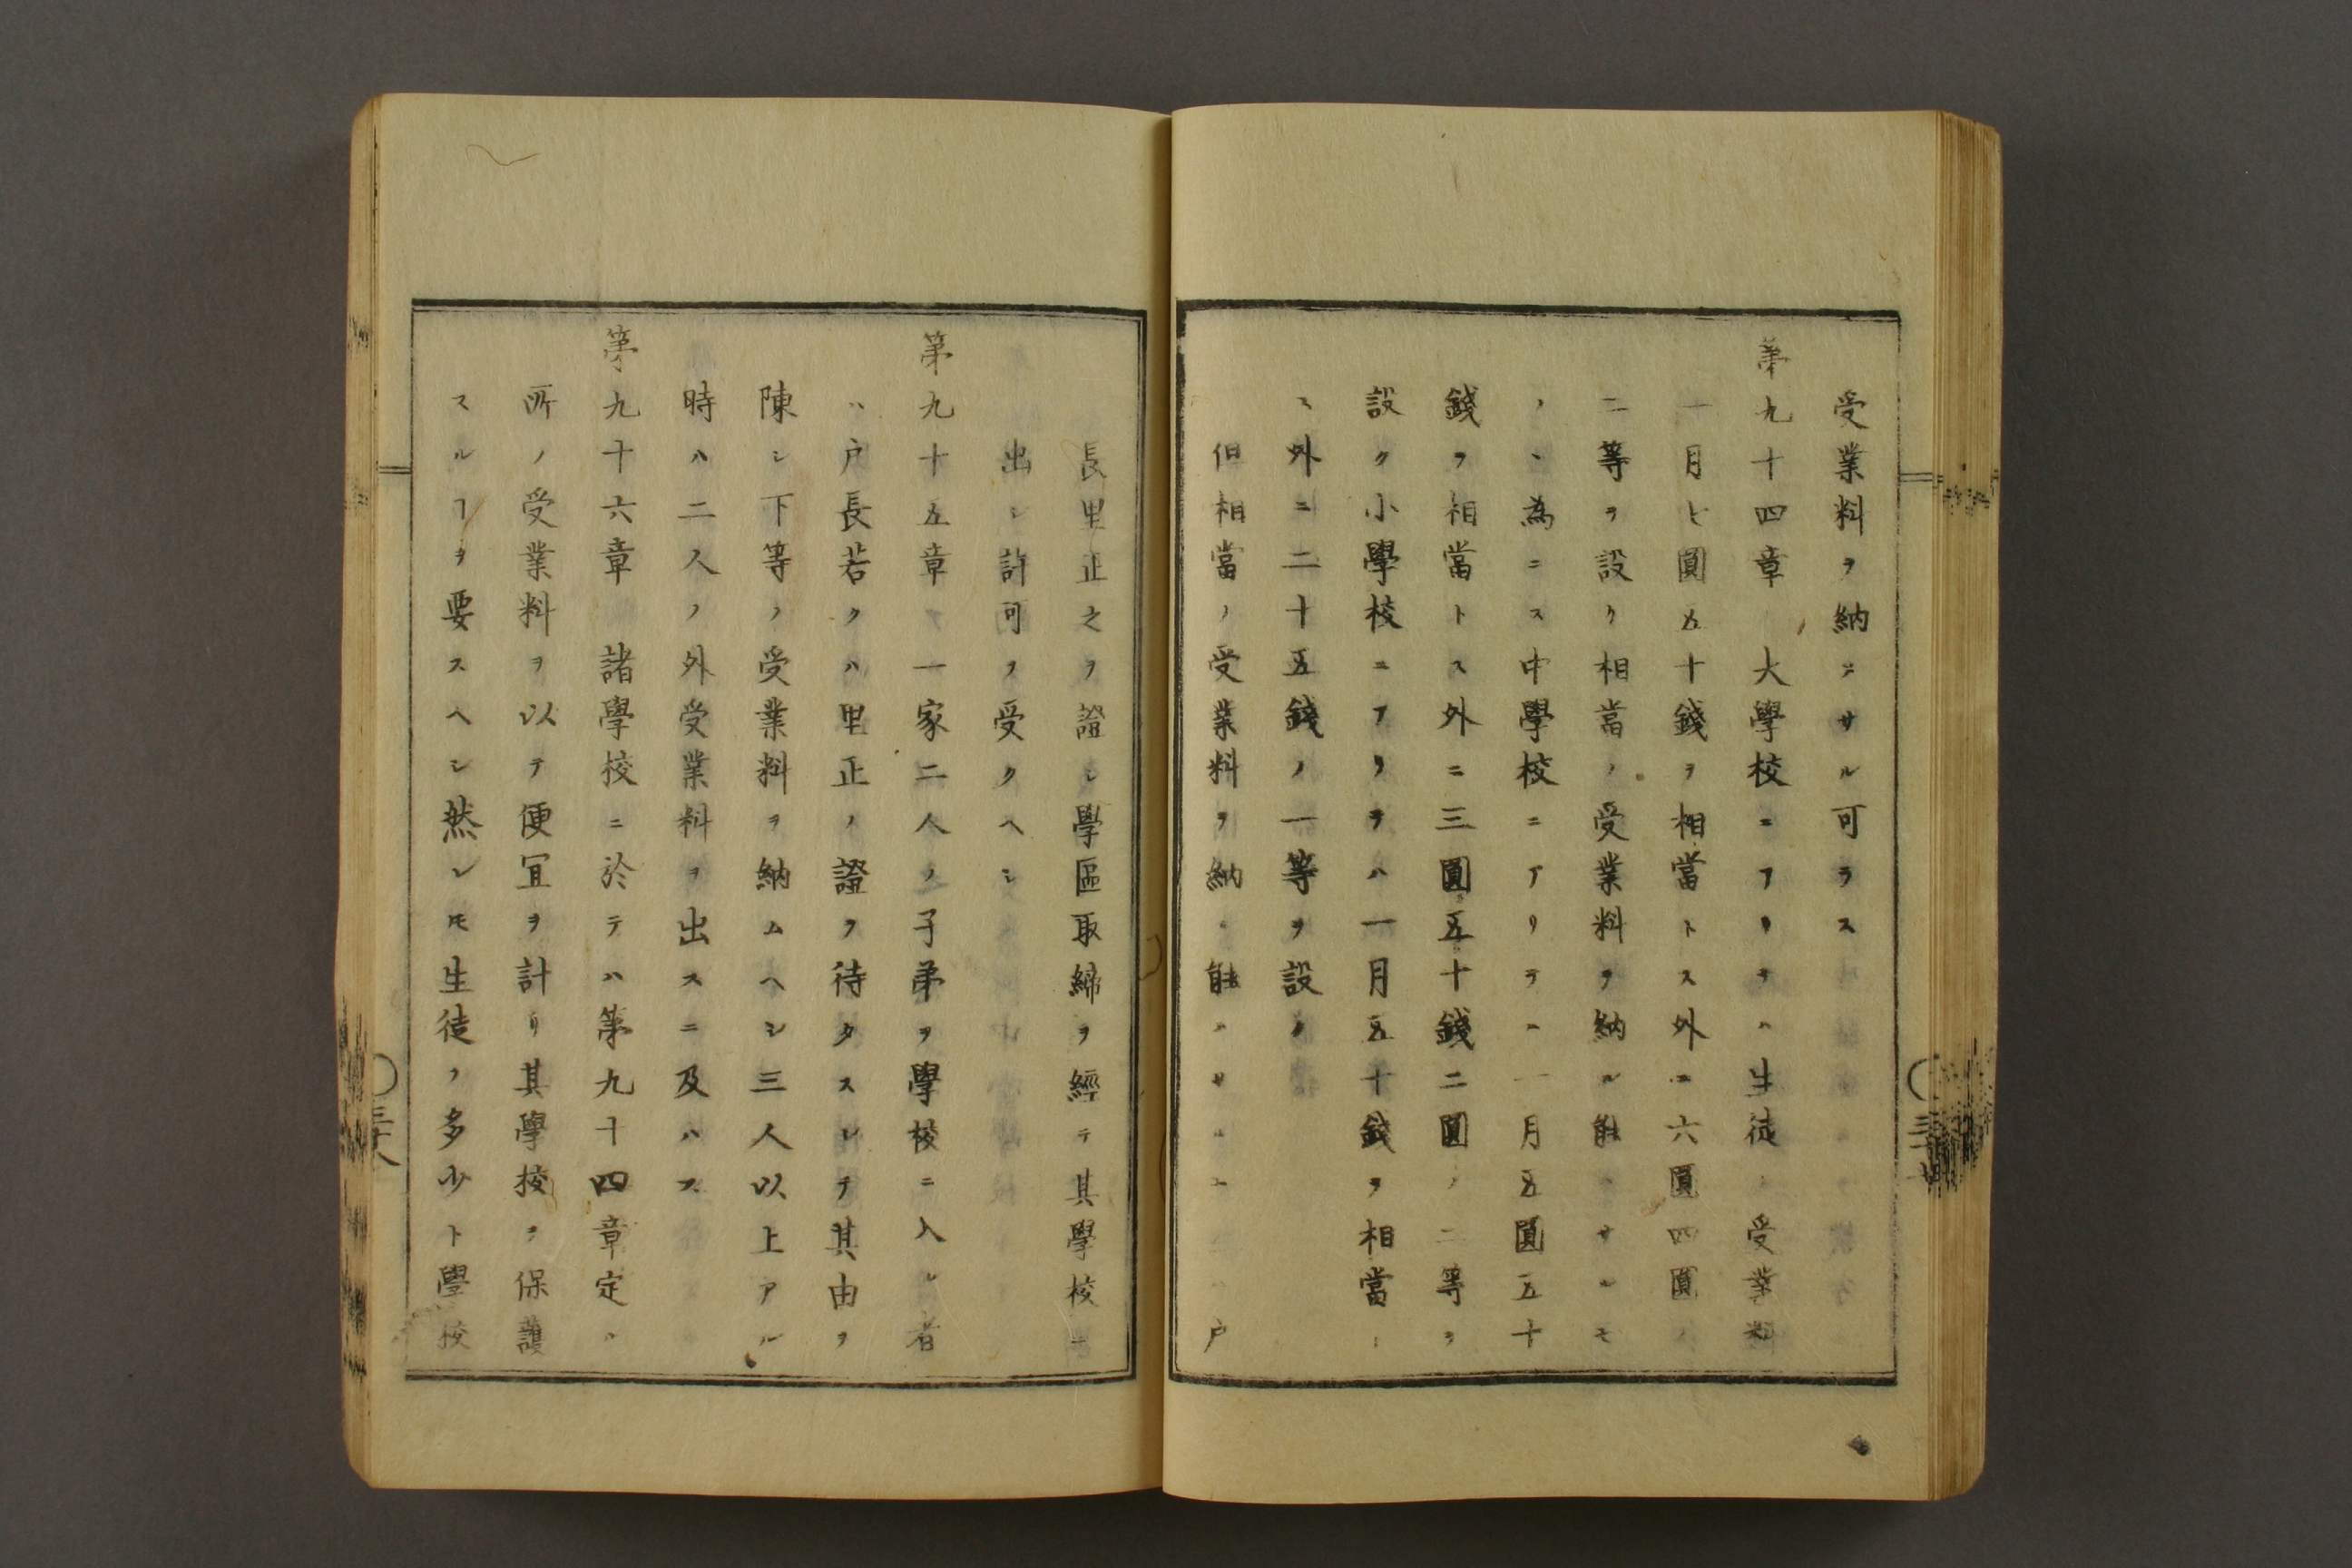 受業料ヲ納ニサル可ラス
第九十四章 大學校ニアリテハ生徒ノ受業料
一月七圓五十錢ヲ相當トス外ニ六圓四圓ノ
二等ヲ設ク相當ノ受業料ヲ納ル能ハサルモ
ノヽ為ニス中學校ニアリテハ一月五圓五十
錢ヲ相當トス外ニ三圓五十錢二圓ノ二等ヲ
設ク小學校ニアリテハ一月五十錢ヲ相當ト
ス外ニ二十五錢ノ一等ヲ設ク
但相當ノ受業料ヲ納ル能ハサル 戸
長里正之ヲ證シ學區取締ヲ經テ其學校ニ
出シ許可ヲ受クヘシ
第九十五章 一家二人ノ子弟ヲ學校ニ入ル者
ハ戸長若クハ里正ノ證ヲ待タスシテ其由ヲ
陳シ下等ノ受業料ヲ納ムヘシ三人以上アル
時ハ二人ノ外受業料ヲ出スニ及ハス
第九十六章 諸學校ニ於テハ第九十四章定ル
所ノ受業料ヲ以テ便宜ヲ計リ其學校ヲ保護
スルヿヲ要スヘシ然レ𪜈生徒ノ多少ト學校
三十八